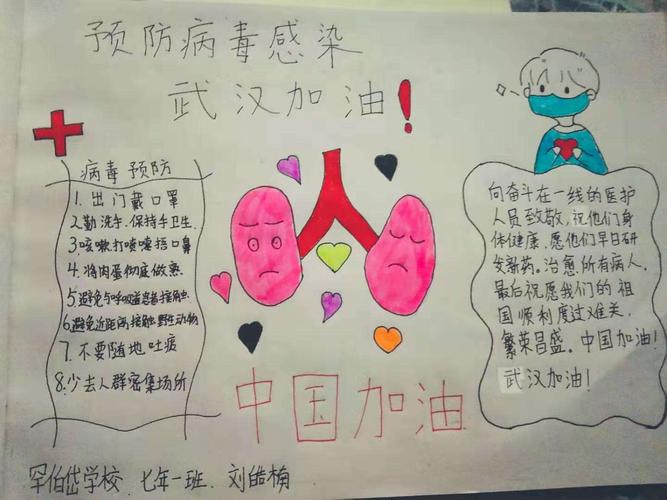 预防病毒感染
武汉加油！
病毒预防
1.出门戴口罩
2.勤洗手.保持手卫生.
3.咳嗽打喷嚏捂口鼻
4.将肉蛋彻底做熟
5.避免与呼吸道患者接触
6.避免近距离接触野生动物
7.不要随地吐痰
8.少去人群密集场所
向奋斗在一线的医护
人员致敬,祝他们身
体健康.愿他们早日研
发新药。治愈所有病人.
最后祝愿我们的祖
国顺利度过难关,
繁荣昌盛。中国加油!
武汉加油!
中国加油
罕伯岱学校.七年一班.刘皓楠